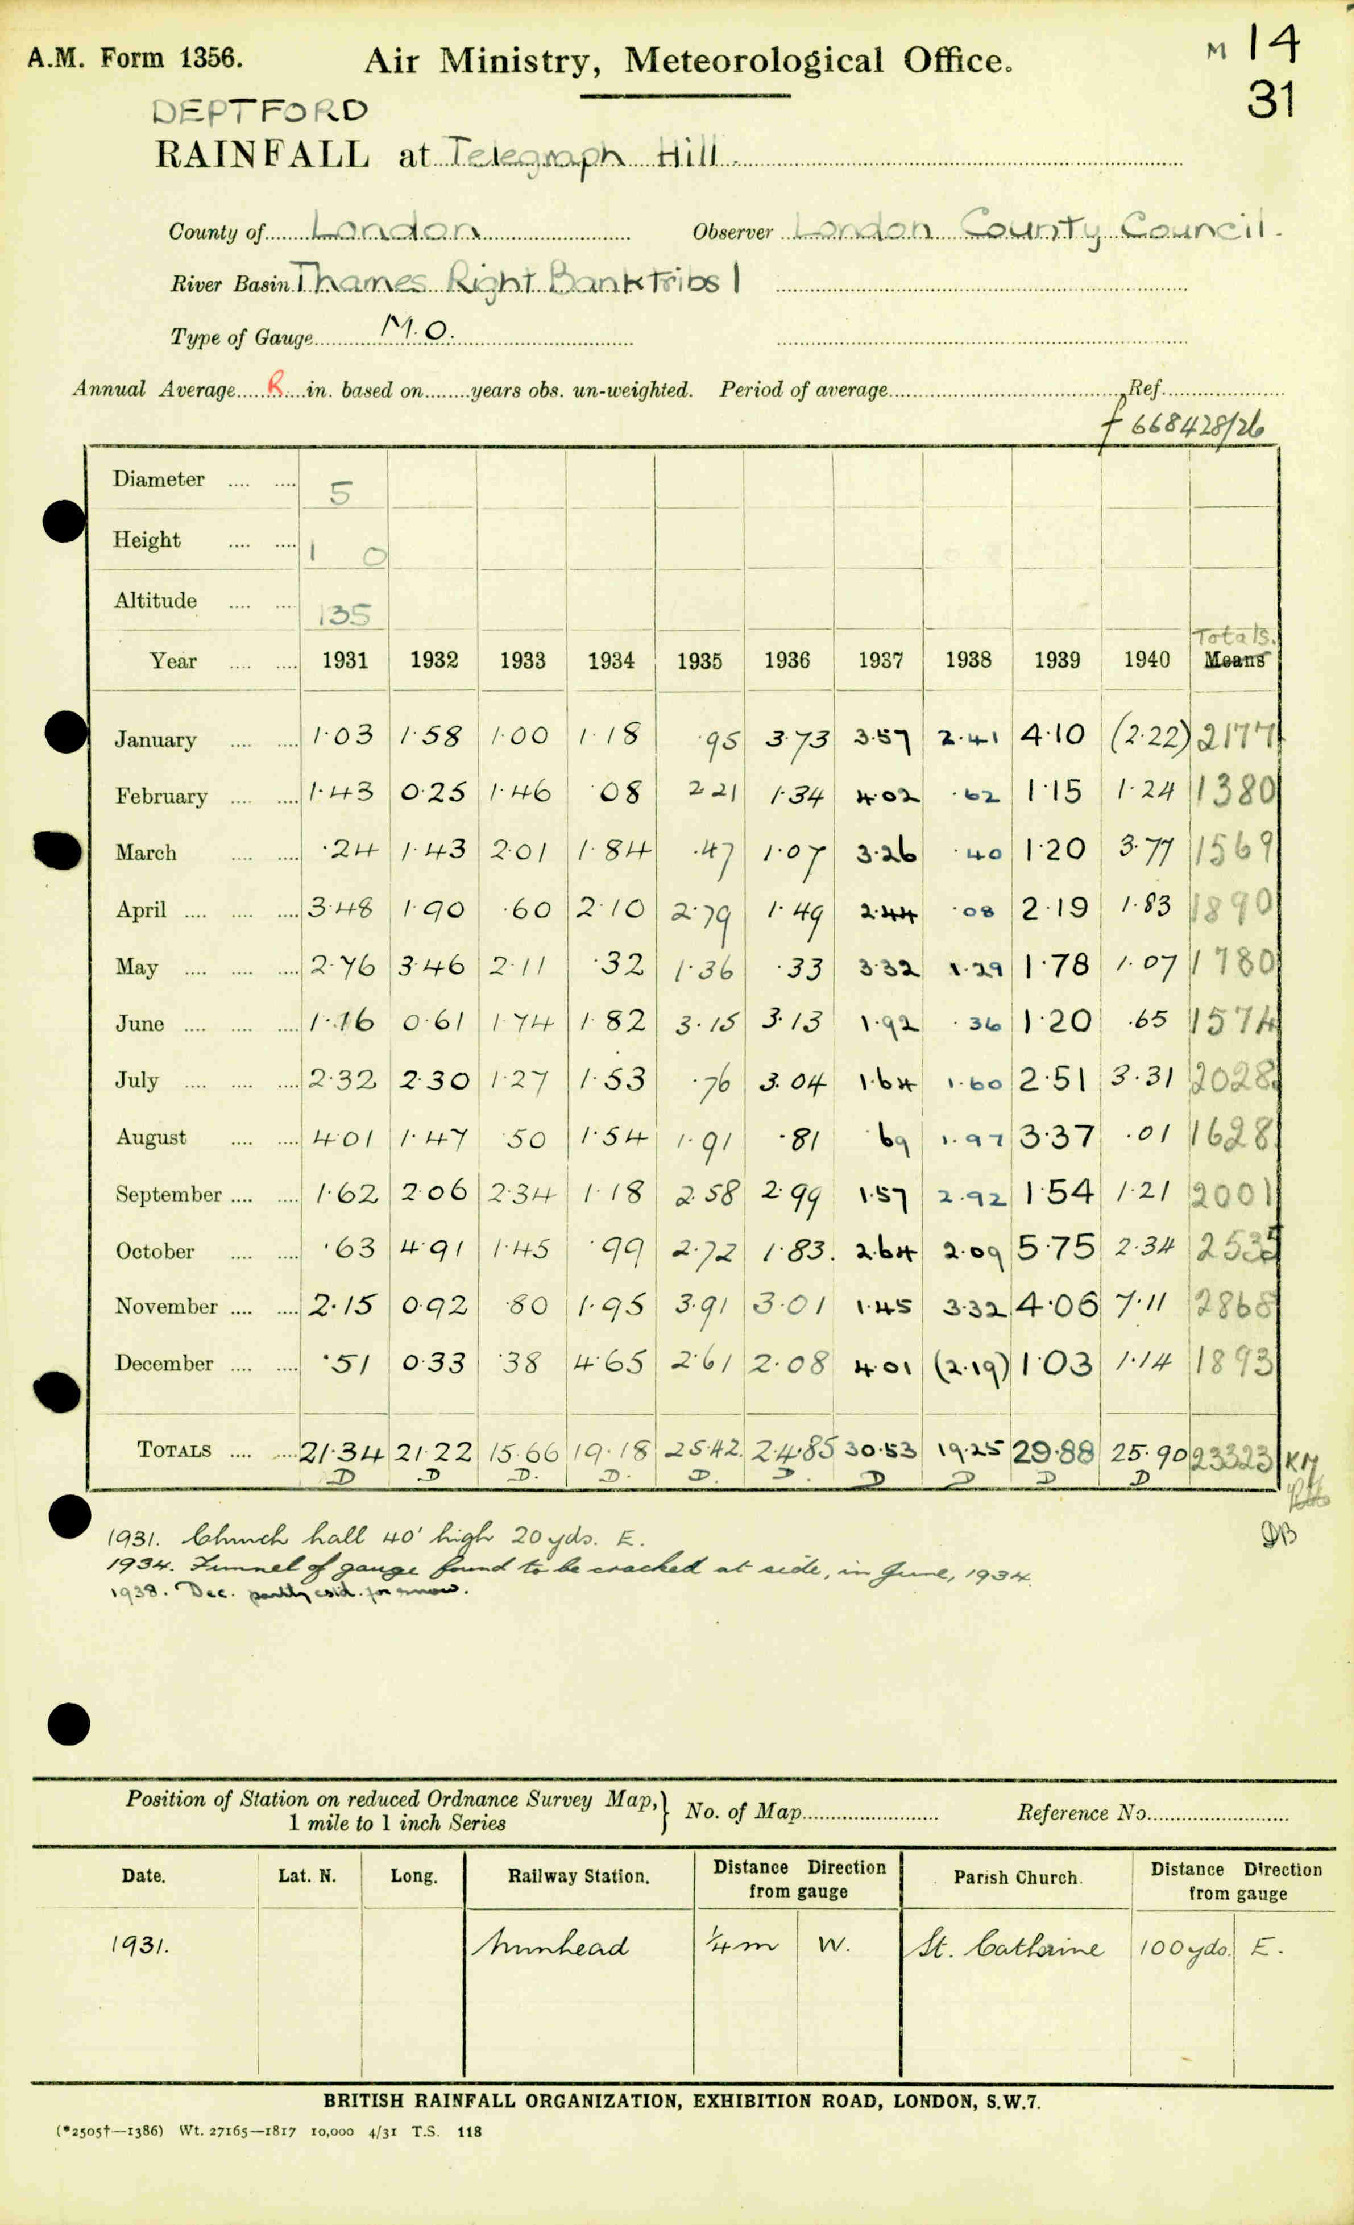 A.M. Form 1356.
Air Ministry, Meteorological Office.
M 14
31
DEPTFORD
RAINFALL at Telegraph Hill
County of London Observer London County Council.
River Basin Thames Right Bank Tribs 1
Type of Gauge M.O.
Annual Average R in. based on years obs. un-weighted. Period of average Ref.
f 668428/26
Diameter 5
Height 1 0
Altitude 135
Totals.
Year 1931 1932 1933 1934 1935 1936 1937 1938 1939 1940 Means
January 1.03 1.58 1.00 1.18 .95 3.73 3.57 2.41 4.10 (2.22) 2177
February 1.43 0.25 1.46 .08 2.21 1.34 4.02 .62 1.15 1.24 1380
March .24 1.43 2.01 1.84 .47 1.07 3.26 .40 1.20 3.77 1569
April 3.48 1.90 .60 2.10 2.79 1.49 2.44 .08 2.19 1.83 1890
May 2.76 3.46 2.11 .32 1.36 .33 3.32 1.29 1.78 1.07 1780
June 1.16 0.61 1.74 1.82 3.15 3.13 1.92 .36 1.20 .65 1574
July 2.32 2.30 1.27 1.53 .76 3.04 1.64 1.60 2.51 3.31 2028
August 4.01 1.47 .50 1.54 1.91 .81 .69 1.97 3.37 .01 1628
September 1.62 2.06 2.34 1.18 2.58 2.99 1.57 2.92 1.54 1.21 2001
October .63 4.91 1.45 .99 2.72 1.83 2.64 2.09 5.75 2.34 2535
November 2.15 0.92 .80 1.95 3.91 3.01 1.45 3.32 4.06 7.11 2868
December .51 0.33 .38 4.65 2.61 2.08 4.01 (2.19) 1.03 1.14 1893
TOTALS 21.34 21.22 15.66 19.18 25.42 24.85 30.53 19.25 29.88 25.90 23323 KM
D D D. D. D. D. D D D D
DB
1931. Church hall 40' high 20 yds. E.
1934. Funnel of gauge found to be cracked at side, in June, 1934.
1938. Dec. partly estd. for snow.
Position of Station on reduced Ordnance Survey Map, 1 mile to 1 inch Series } No. of Map Reference No.
Date. Lat. N. Long. Railway Station. Distance Direction from gauge Parish Church. Distance Direction from gauge
1931. Nunhead ¼ m W. St. Catherine 100 yds. E.
BRITISH RAINFALL ORGANIZATION, EXHIBITION ROAD, LONDON, S.W.7.
(*2505†—1386) Wt. 27165—1817 10,000 4/31 T.S. 118